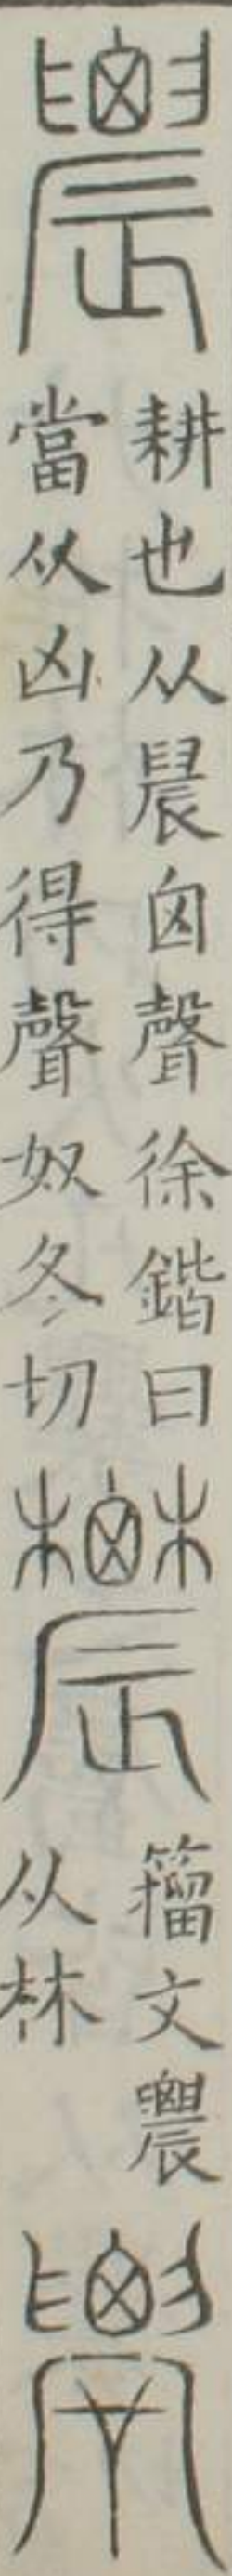 䢉
耕也从䢅囟聲徐鍇曰
當从凶乃得聲奴冬切
籒文䢉
从林